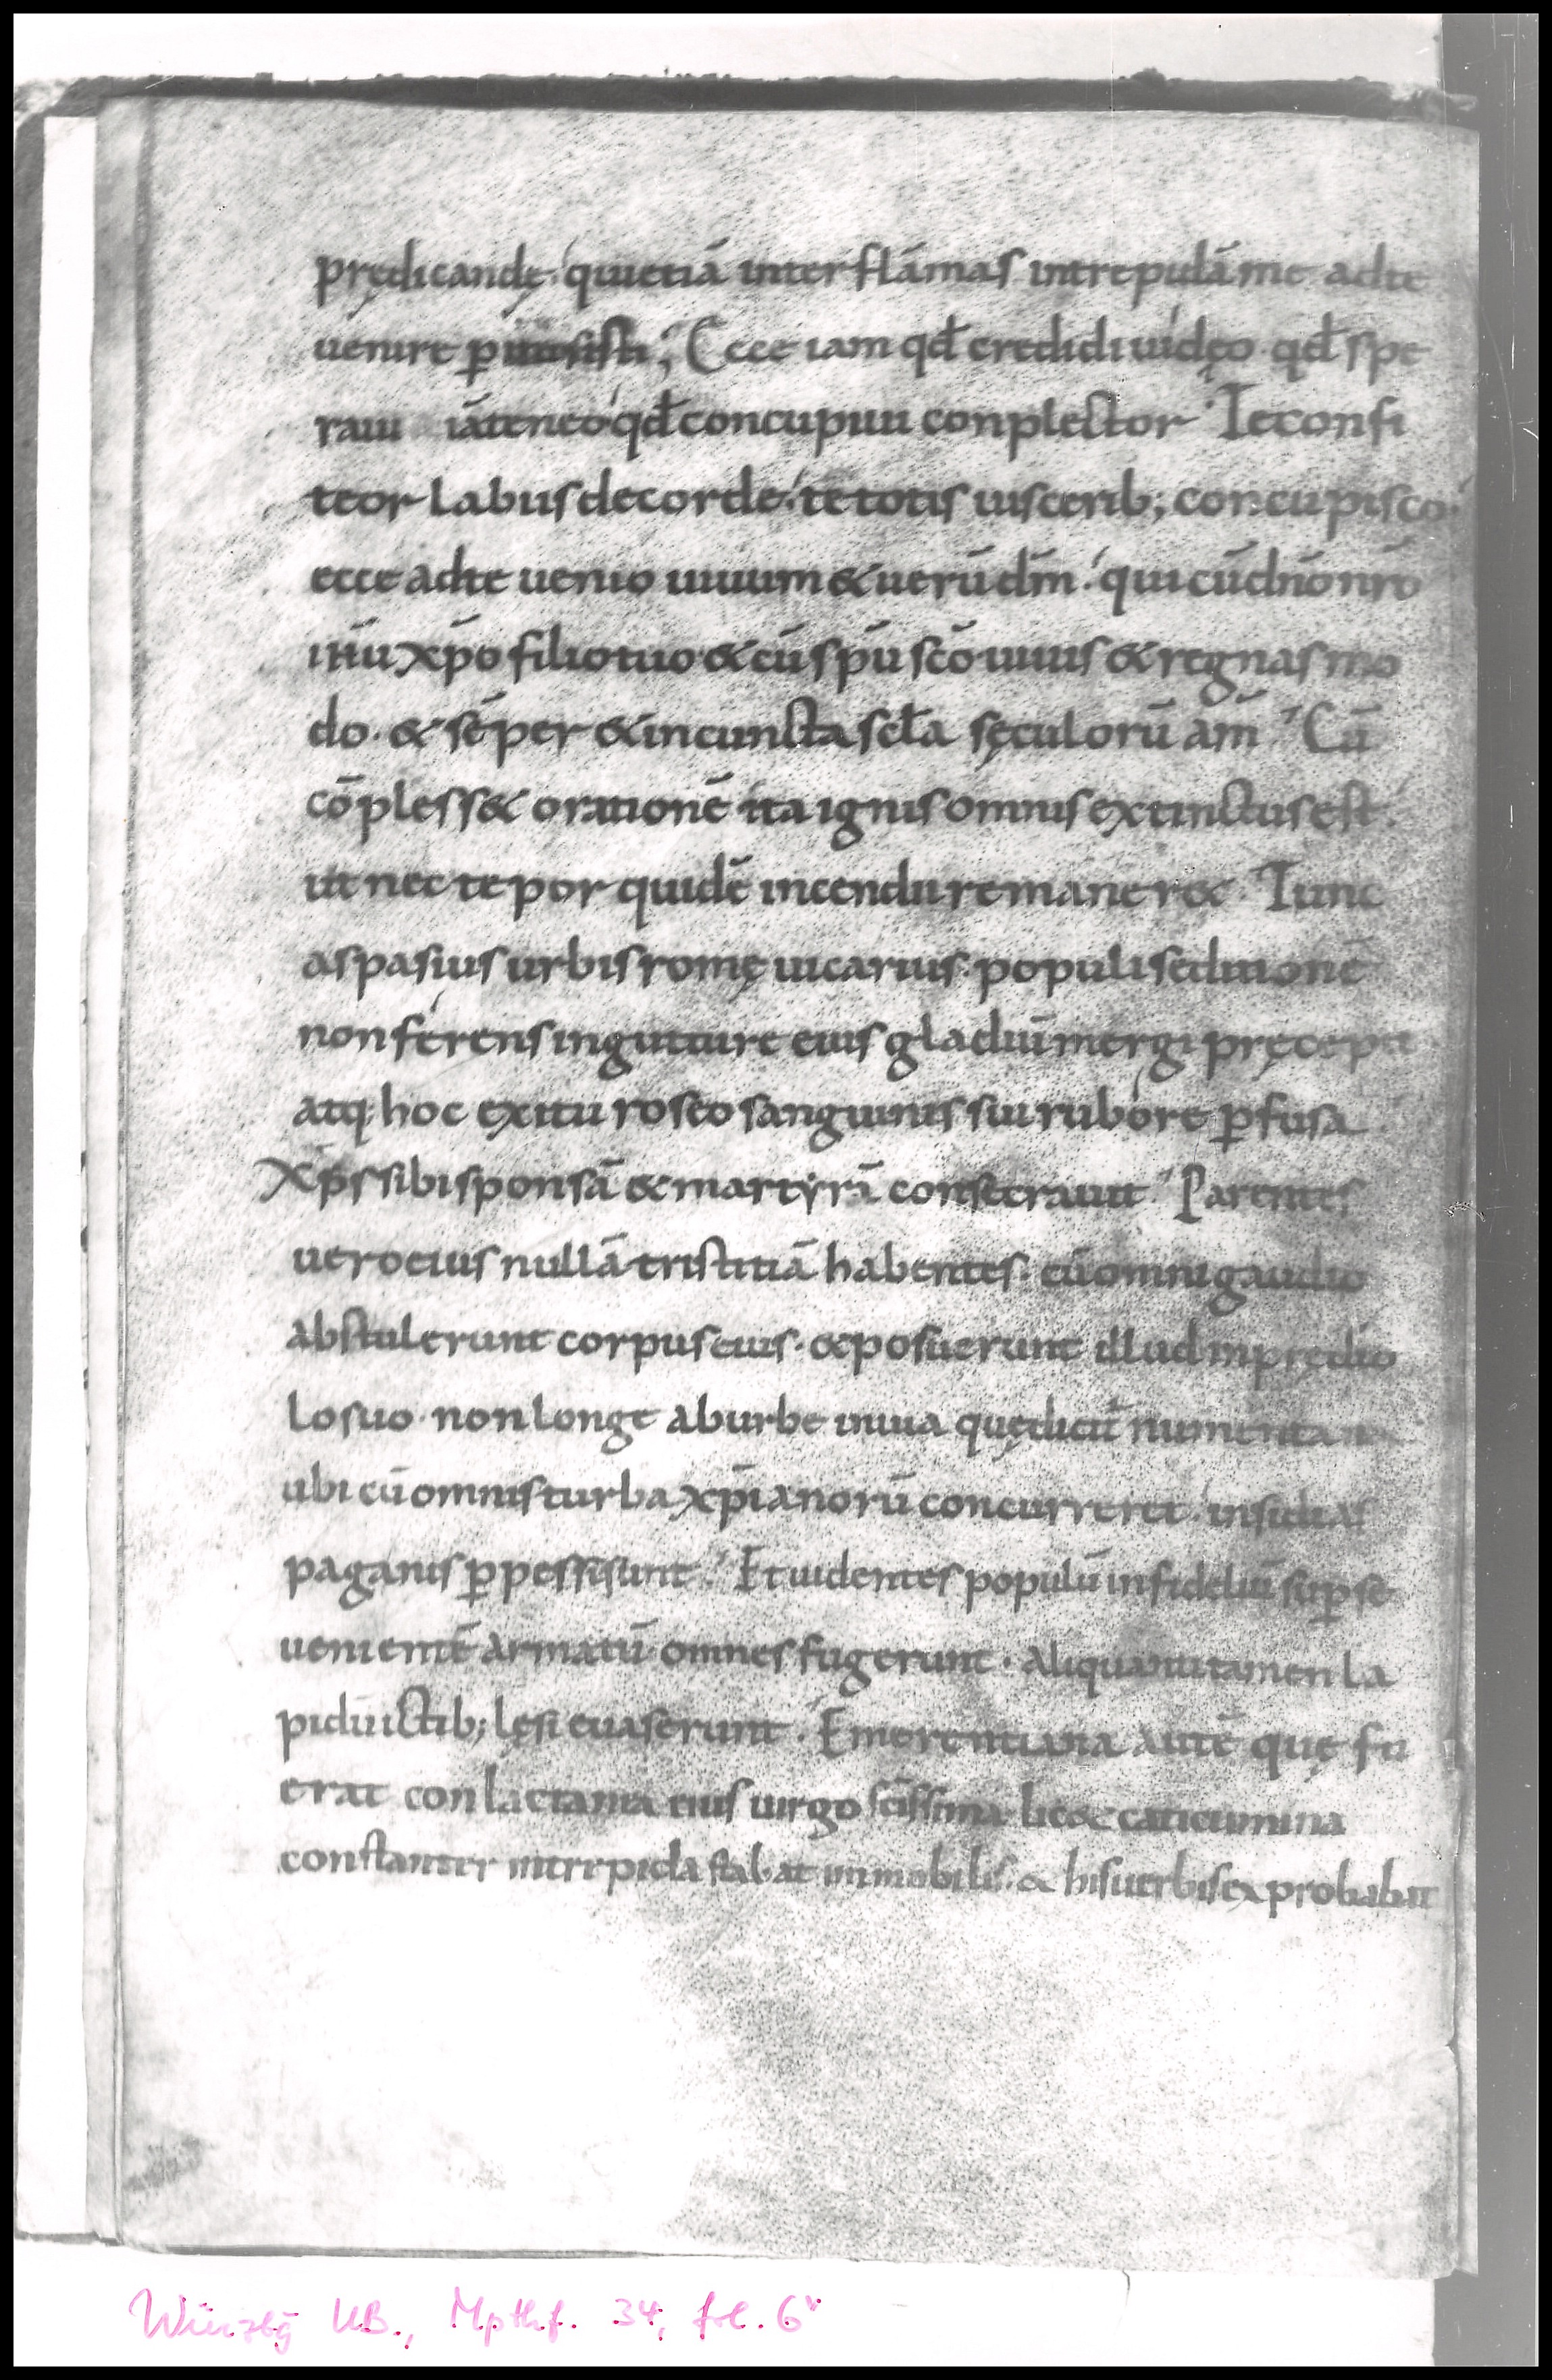 prędicandę. qui etiā inter flāmas intrepidā me ad te
uenire p̱misisti; Ecce iam qđ credidi uidęo. qđ spe
raui iā teneo qđ concupiui conplector. Te confi
teor labiis de corde. te totis uiscerib; concupisco.
ecce ad te uenio uiuum & uerū dm̄. qui cū dn̄o nr̄o
ih̄u xp̄o filio tuo & cū sp̄u sc̄o uiuis & regnas mo
do. & sēper & in cuncta scła sęculorū am̄. Cū
cōpless& orationē ita ignis omnis extinctus est.
ut nec tepor quidē incendii remaner&. Tunc
aspasius urbis romę uicarius. populi seditionē
non ferens in gutture eius gladiū mergi pręcepit
atq; hoc exitu roseo sanguinis sui rubore p̱fusa.
Xp̄s sibi sponsā & martyrā consecrauit. Parentes
uero eius nullā tristitiā habentes. cū omni gaudio
abstulerunt corpus eius. & posuerunt illud in prędio
lo suo. non longe ab urbe in uia quę dicit̄ numentana
ubi cū omnis turba xp̄ianorū concurreret. insidias
paganis p̱pessi sunt. Et uidentes populū infideliū sup̱ se
uenientē armatū omnes fugerunt. aliquanti tamen la
pidū ictib; lęsi euaserunt. Emerentiana autē quę fu
erat conlactania eius uirgo sc̄issima lic& caticumina
constanter intrepida stabat inmobilis. & his uerbis exprobabat
Würzbg UB., Mpthf. 34, fol. 6v